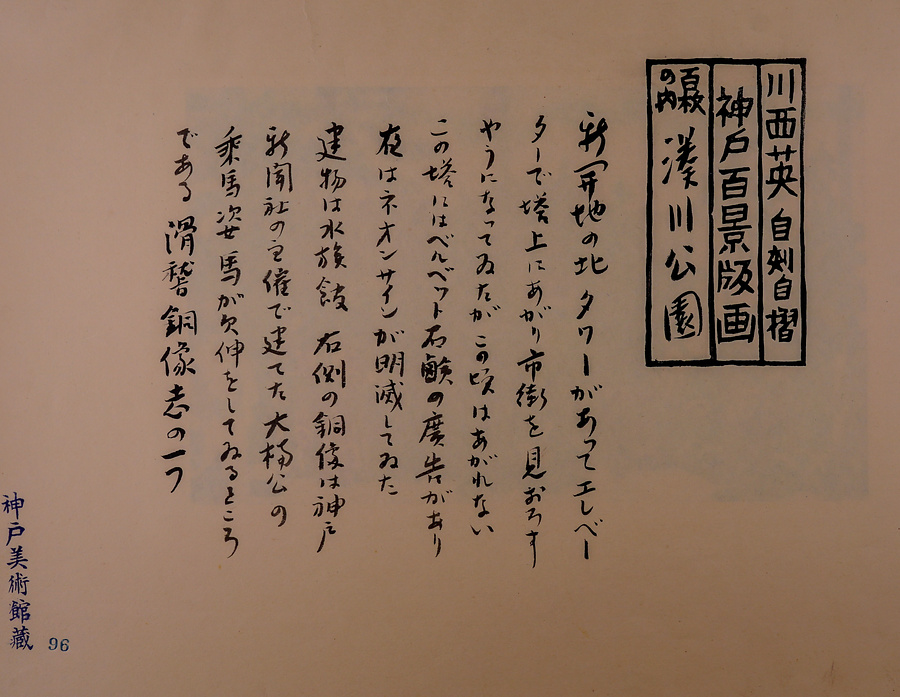 川西英 自刻自摺
神戸百景版画
百枚の内 湊川公園
新開地の北 タワーがあつてエレベー
ターで塔上にあがり市街を見おろす
やうになつてゐたが この頃はあがれない
この塔にはベルベット石鹸の廣告があり
夜はネオンサインが明滅してゐた
建物は水族館 右側の銅像は神戸
新聞社の主催で建てた大楠公の
乗馬姿 馬が欠伸をしてゐるところ
である 滑稽銅像志の一つ
神戸美術館蔵
96